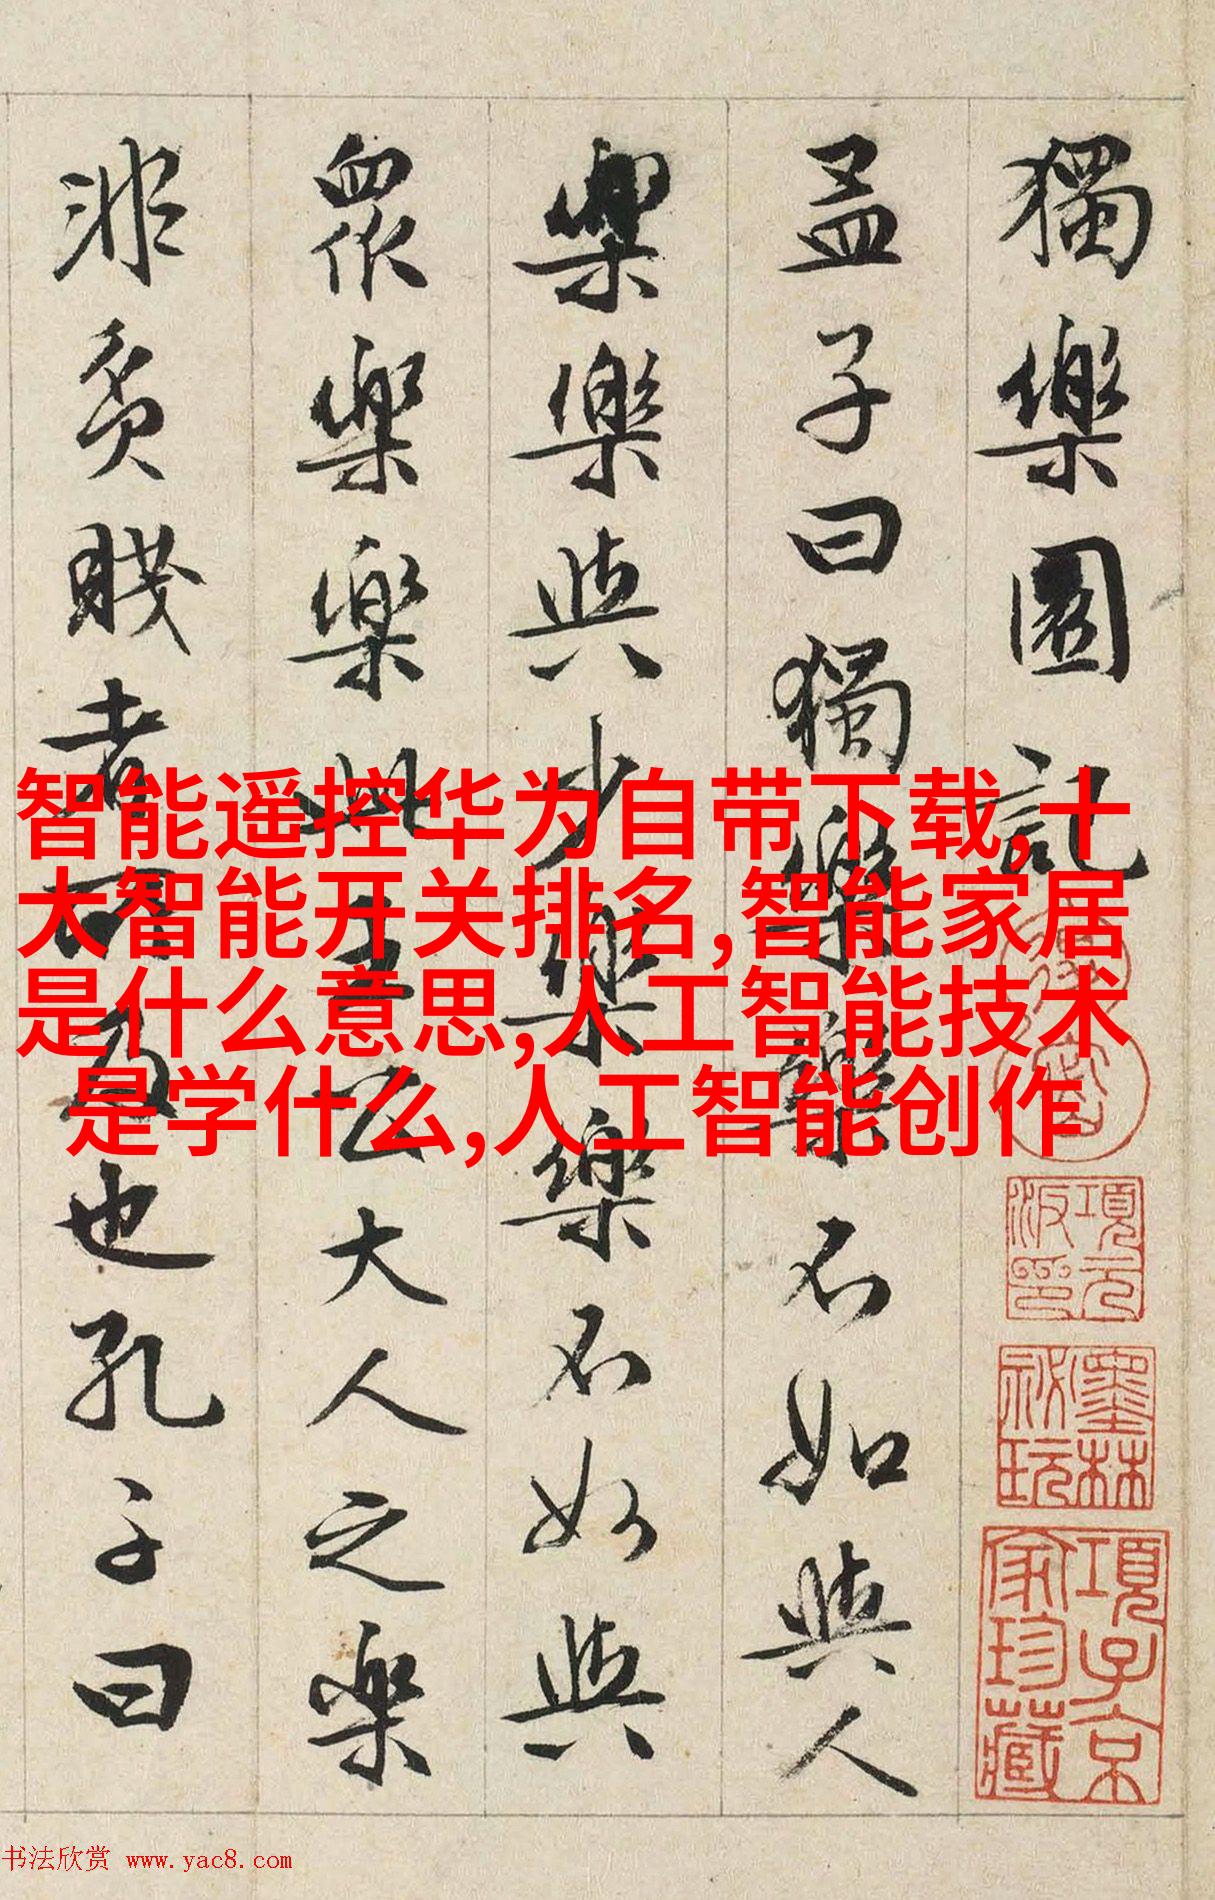 獨樂園記
孟子曰獨樂樂不如與人
樂樂與少樂樂不如與
眾樂樂此王公大人之樂
非貧賤者所及也孔子曰
智能遥控华为自带下载,十
大智能开关排名,智能家居
是什么意思,人工智能技术
是学什么,人工智能创作
項元
汳印
墨林
祕玩
項子京
家珍藏
书法欣赏 www.yac8.com